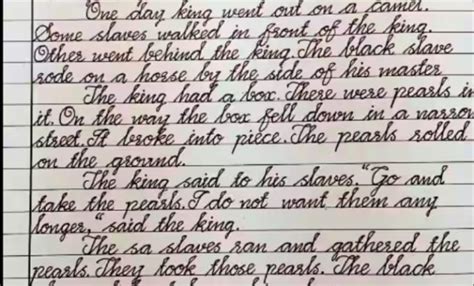 One day king went out on a camel.
Some slaves walked in front of the king.
Other went behind the king. The black slave
rode on a horse by the side of his master
The king had a box. There were pearls in
it. On the way the box fell down in a narrow
street. It broke into piece. The pearls rolled
on the ground.
The king said to his slaves, "Go and
take the pearls. I do not want them any
longer," said the king.
The sa slaves ran and gathered the
pearls. They took those pearls. The black